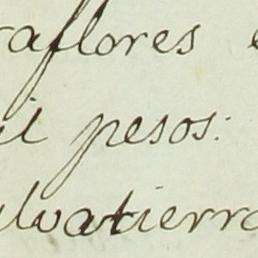 raflores e
il pesos:
alvatierra